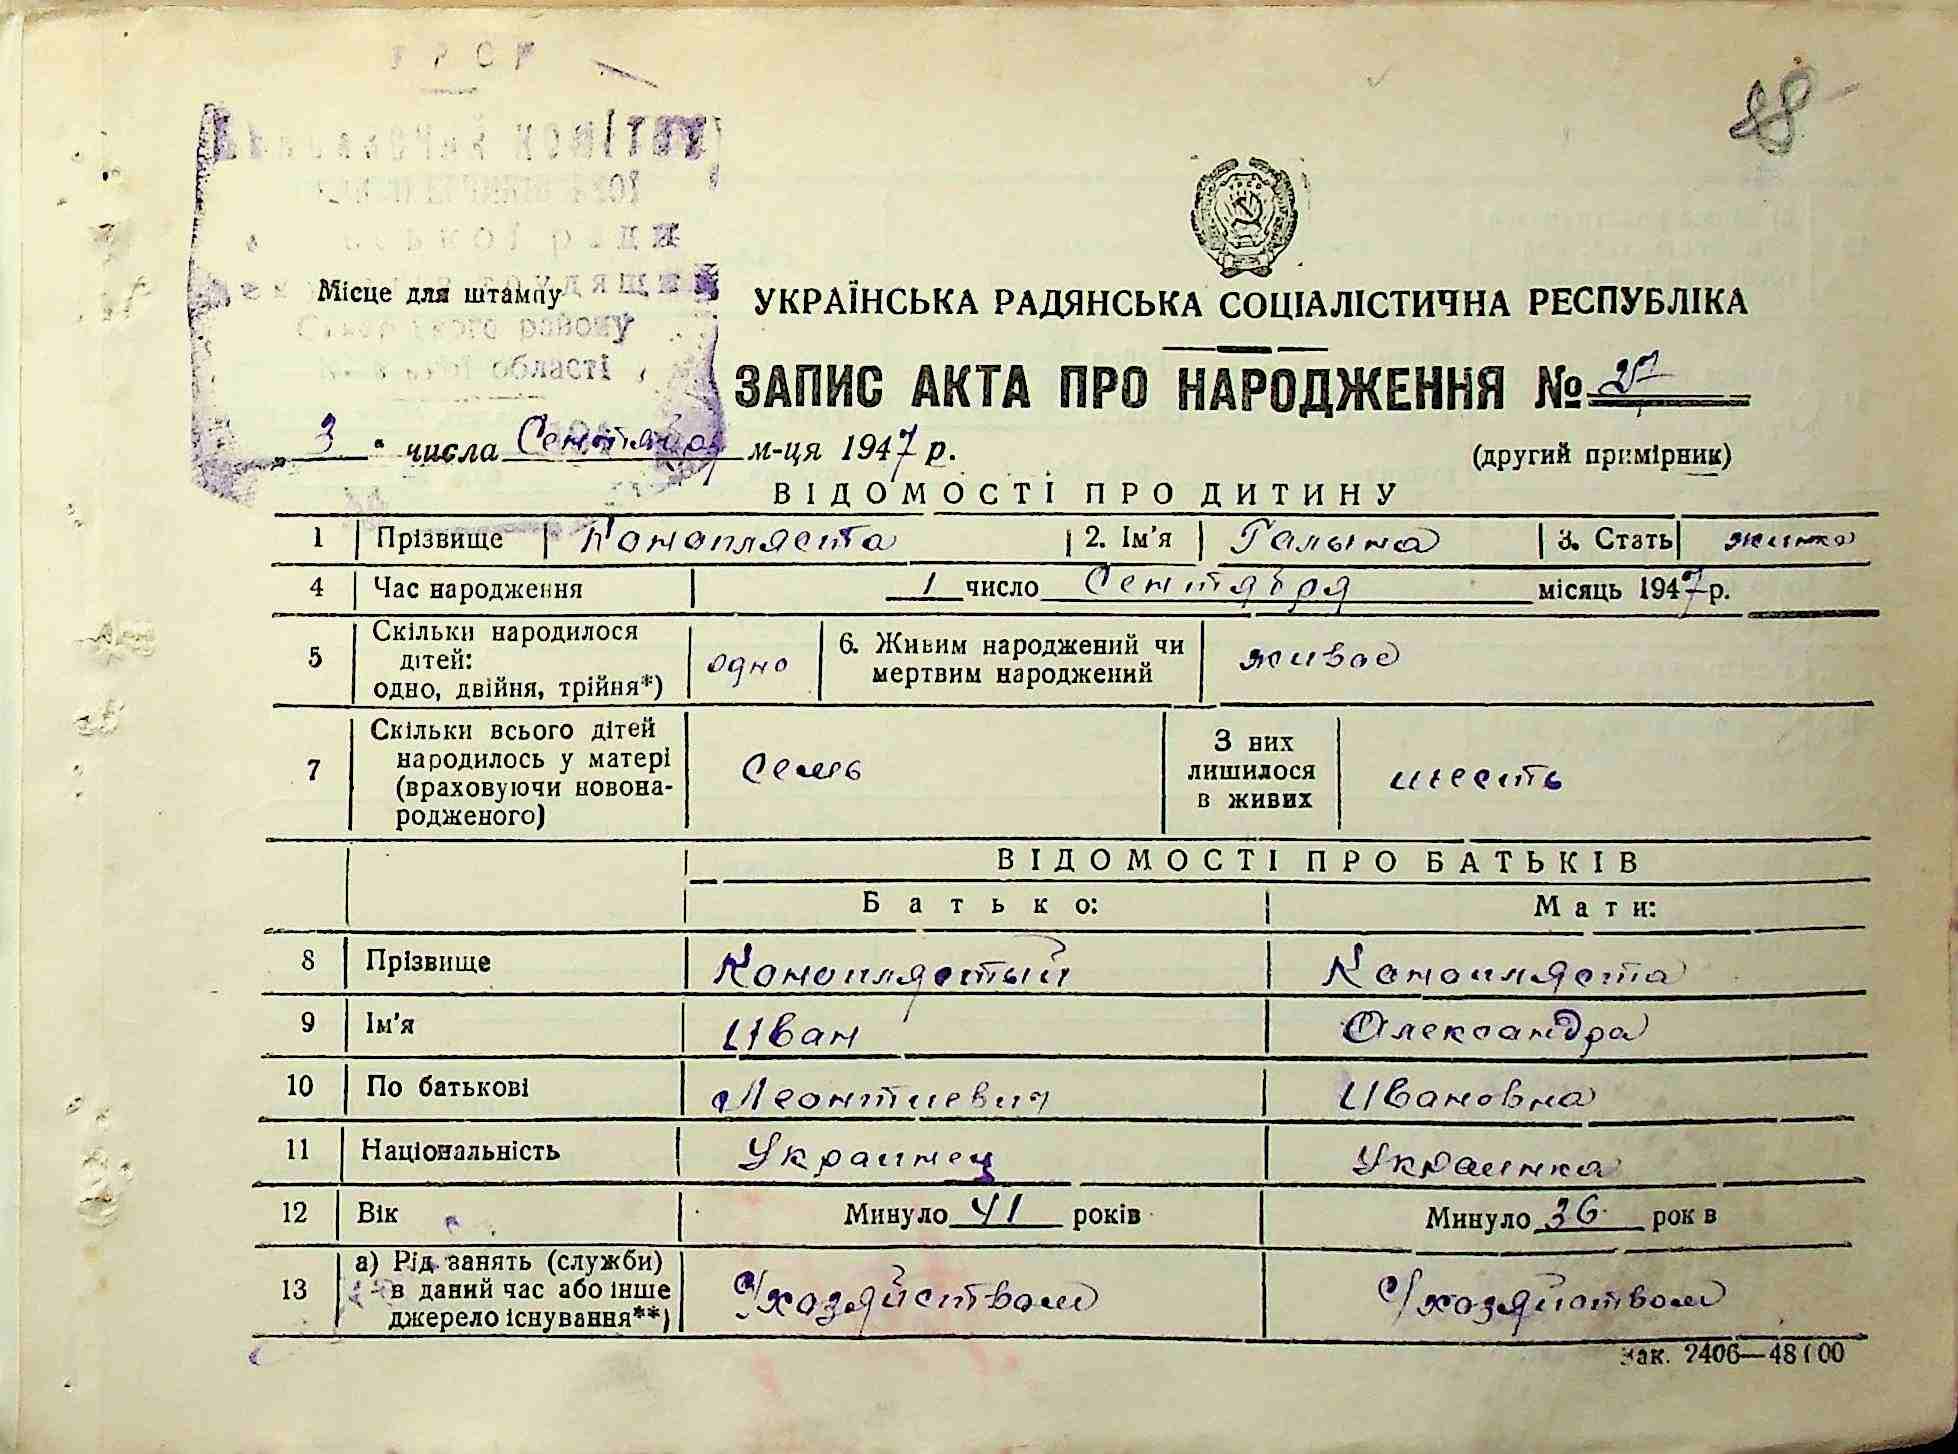 УРСР
ської ради
трудящих
Місце для штампу
району
області
УКРАЇНСЬКА РАДЯНСЬКА СОЦІАЛІСТИЧНА РЕСПУБЛІКА
ЗАПИС АКТА ПРО НАРОДЖЕННЯ № 27
„ 3 “ числа Сентября м-ця 1947 р.
(другий примірник)
ВІДОМОСТІ ПРО ДИТИНУ
1 Прізвище Конопляста 2. Ім'я Галына 3. Стать жинка
4 Час народження 1 число Сентября місяць 1947 р.
5 Скільки народилося дітей: одно, двійня, трійня*) одно 6. Живим народжений чи мертвим народжений живое
7 Скільки всього дітей народилось у матері (враховуючи новонародженого) Семь З них лишилося в живих шесть
ВІДОМОСТІ ПРО БАТЬКІВ
Батько: Мати:
8 Прізвище Коноплястый Конопляста
9 Ім'я Иван Олександра
10 По батькові Леонтиевич Ивановна
11 Національність Украинец Украинка
12 Вік Минуло 41 років Минуло 36 рок в
13 а) Рід занять (служби) в даний час або інше джерело існування**) С/хозяйством С/хозяйством
Зак. 2406—48100